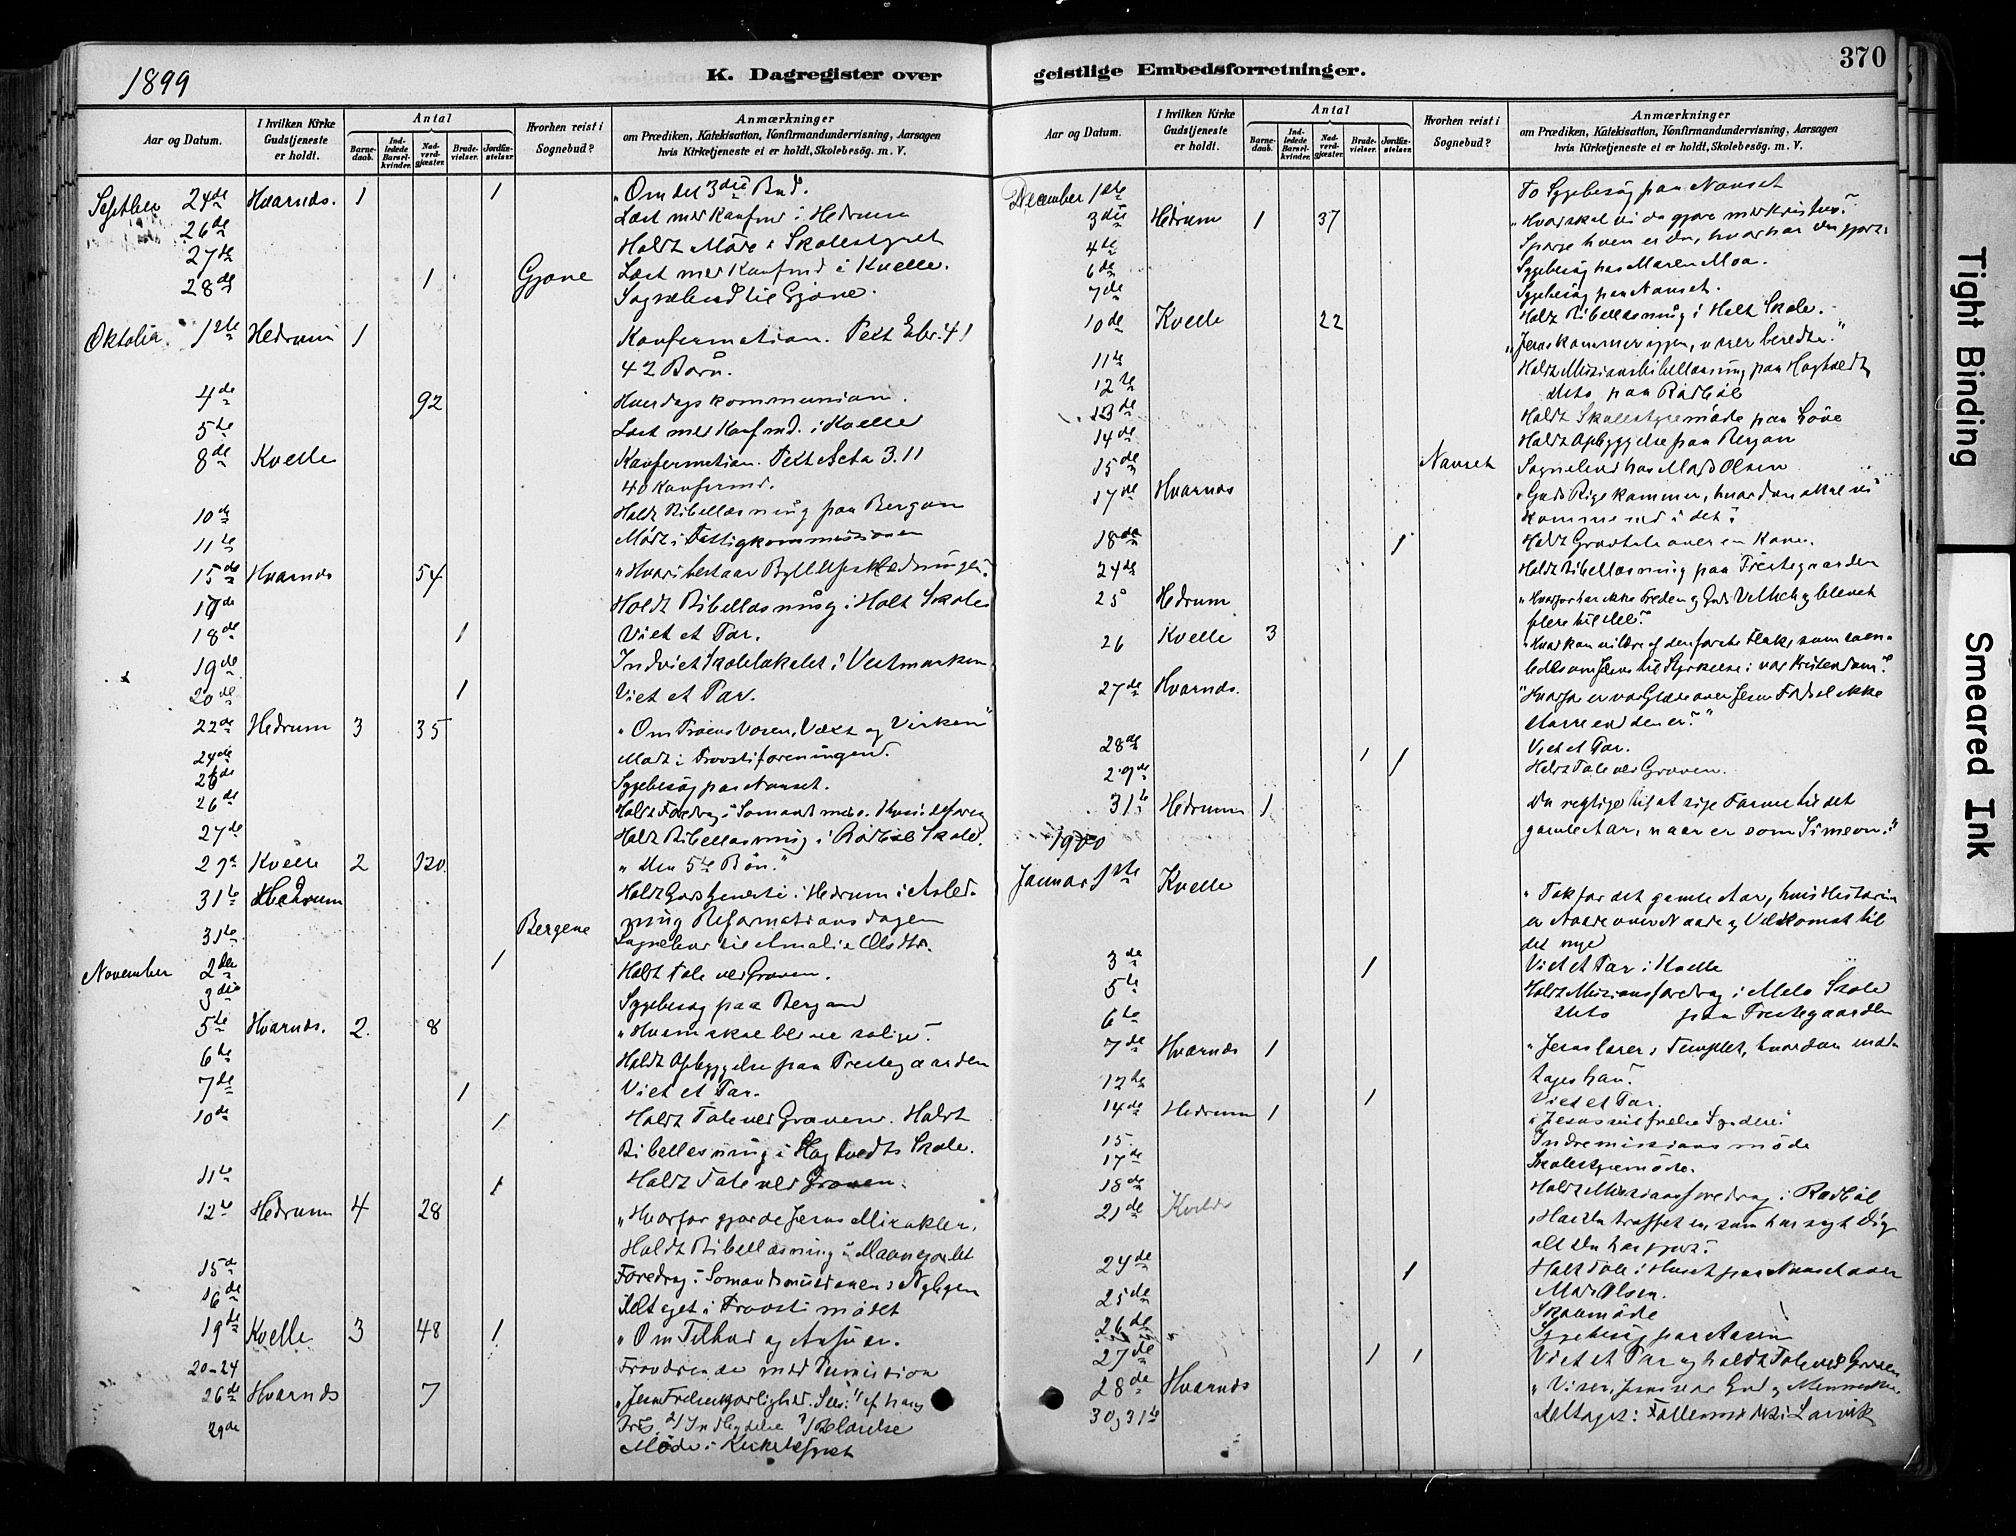 1899
K. Dagregister over
Aar og Datum.
I hvilken Kirke Gudstjeneste er holdt.
Antal
Barnedaab.
Indledede Barselkvinder.
Nadverdgjæster.
Brudevielser.
Jordfæstelser.
Hvorhen reist i Sognebud?
Anmærkninger
om Prædiken, Katekisation, Konfirmandundervisning, Aarsagen
hvis Kirketjeneste ei er holdt, Skolebesøg. m. V.
Septber 24de Hvarnds. 1 1 "Om det 3die Bud.
26de Læst med Konfmd i Hedrum
27de Holdt Möde i Skolestyret
28de 1 Gjone Læst med Konfmd i Kvelle.
Sognebud til Gjone.
Oktober 1ste Hedrum 1 Konfirmation. Text Ebr. 4 1
42 Børn.
4de 92 Hverdagskommunion.
5te Læst med Konfmd. i Kvelle
8de Kvelle Konfirmation. Text Acta 3.11
40 Konfirmd.
10de Holdt Bibellæsning paa Bergan
11te Møde i Fattigkommissionen
15de Hvarnds 54 "Hvori bestaar
17de Holdt Bibellæsning i Holt Skole
18de 1 Viet et Par.
19de Indviet Skolelokalet i Vestmarken
20de 1 Viet et Par.
22de Hedrum 3 35 "Om Troens Væsen, Vækst og Virken"
24de Mødt i Provstiforeningen.
26de Sygebesøg paa Nanset.
26de Holdt Foredrag i Sømandsmis.
27de Holdt Bibellæsning i Rødbøl Skole.
29de Kvelle 2 120 "Den 5te Bøn."
31te Hedrum Holdt Gudstjeneste i Hedrum i Anledning Reformationsdagen
31te Bergene Sognebud til Amalie Olsdtr.
November 2den 1 Holdt Tale ved Graven.
3die Sygebesøg paa Bergan
5te Hvarnds. 2. 8 "Hvem skal blive salige?
6te Holdt Opbyggelse paa Prestegaarden
7de 1 Viet et Par.
10de 1 Holdt Tale ved Graven. Holdt
Bibellesning i Hagtvedts Skole.
11te 1 Holdt Tale ved Graven.
12te Hedrum 4 28 "Hvorfor gjorde Jesus Mirakler.
Holdt Bibellæsning i
15de Foredrag i Sømandsmissionen i
16de Deltaget i Provstimødet
19de Kvelle 3 48 1 "Om Tilbud og
20-24 Fraværende med Permission
26de Hvarnds 7 "Jesu Frelserkjærlighed.
29de Møde i Kirketilsynet
geistlige Embedsforretninger.
370
Aar og Datum.
I hvilken Kirke Gudstjeneste er holdt.
Antal
Barnedaab.
Indledede Barselkvinder.
Nadverdgjæster.
Brudevielser.
Jordfæstelser.
Hvorhen reist i Sognebud?
Anmærkninger
om Prædiken, Katekisation, Konfirmandundervisning, Aarsagen
hvis Kirketjeneste ei er holdt, Skolebesøg. m. V.
December 1ste To Sygebesøg paa Nanset
3die Hedrum 1 37 "Hvad skal vi da gjøre med Kristus?
Spørge hvem er du, hvad har du gjort.
4de Sygebesøg hos Maren Moa.
6de Sygebesøg paa Nanset.
7de Holdt Bibellæsning i Holt Skole.
10de Kvelle 22 "Jesus kommer igjen, værer beredte."
11te Holdt Missionsbibellæsning paa Hagtvedt
12te dito paa Rødbøl
13de Holdt Skolestyremöde paa Löve
14de Holdt Opbyggelse paa Bergan
15de Nanset Sognebud hos Mads Olsen
17de Hvarnds "Guds Rige kommer, hvordan skal vi
komme ind i det?
18de 1 Holdt Gravtale over en Kone.
24de Holdt Bibellæsning paa Prestegaarden
25 Hedrum "Hvorfor har ikke Freden og Guds Velbehag blevet
flere til Del?
26 Kvelle 3
27de Hvarnds. "Hvorfor er vor Glæde over Jesu Fødsel ikke
større end den er?"
28de 1 Viet et Par.
29de 1 Holdt Tale ved Graven.
31te Hedrum 1 Du
gamle Aar, naar er som Simeon."
1900
Januar 1ste Kvelle "Tak for det gamle Aar, hvis Historie
er Naade over Naade og Velkomst til
det nye
3de 1 Viet et Par i Kvelle
5te Holdt Missionsforedrag i Melø Skole
6te dito paa Prestegaarden
7de Hvarnds 1 "Jesus lærer i Templet, hvordan
tages han?
12te 1 Viet et Par.
14de Hedrum 1 "Jesus vil frelse Syndere."
15. Indremissionsmöde
17de Skolestyremöde.
18de Holdt Missionsforedrag i Rødbøl
21de Kvelde "Har du truffet en, som har sagt dig
alt du har gjort?
24de 1 Holdt Tale i Huset paa Nanset over
Mads Olsen.
25de Skolemöde
26de Sygebesøg paa Aasen
27de 1 1 Viet et Par og holdt Tale ved Graven
28de Hvarnds "Viser Jesus sig Gud og Menneske.
30, 31te Deltaget i Fællesmøde i Larvik
Tight Binding
Smeared Ink